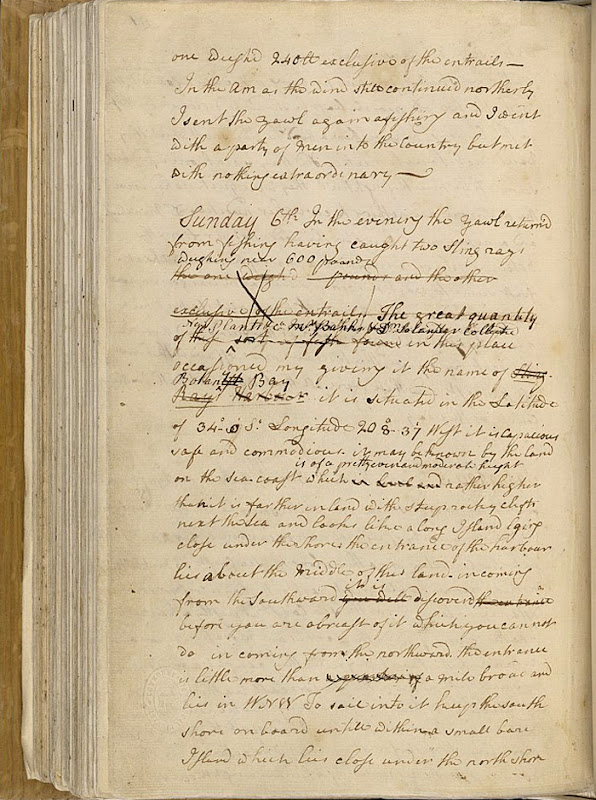 one weigh'd 240 lb exclusive of the entrails —
In the AM as the wind still continued northerly
I sent the yawl again a fishing and I went
with a party of men into the Country but met
with nothing extraordinary —
Sunday 6th In the evening the yawl return'd
from fishing having caught two Sting rays
weighing near 600 pounds
the one weigh'd pounds and the other
exclusive of the entrails. The great quantity
New Plants &c Mr Banks & Dr Solander collected
of these sort of fish found in this place
occasioned my giving it the name of Sting
Botany Bay
Rays Harbour it is situated in the Latitude
of 34°..0' S. Longitude 208°..37' West it is capacious
safe and commodious it may be known by the land
is of a pretty even and moderate height
on the sea-coast which is level and rather higher
then it is farther inland with steep rocky clifts
next the sea and looks like a long Island lying
close under the shore the entrance of the harbour
lies about the middle of this land in coming
it is
from the southward you will discover'd the entrance
before you are abreast of it which you cannot
do in coming from the northward the entrance
is little more than a quarter of a mile broad and
lies in WNW To sail into it keep the south
shore on board untill within a small bare
Island which lies close under the north shore